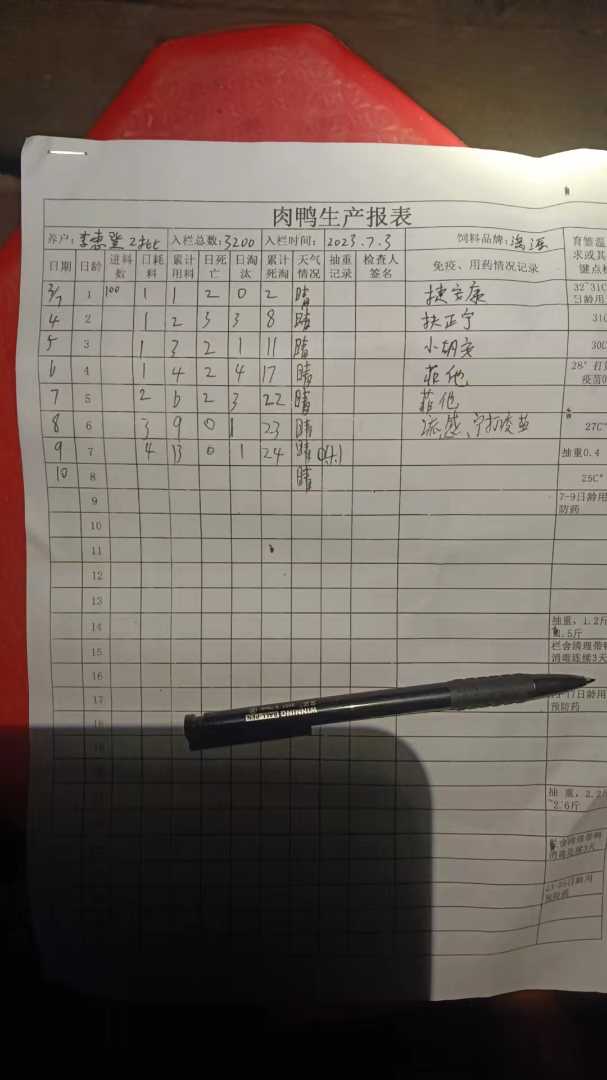 肉鸭生产报表
养户: 李惠登 2批 入栏总数: 3200 入栏时间: 2023.7.3 饲料品牌: 育雏温
日期 日龄 进料数 日耗料 累计用料 日死亡 日淘汰 累计死淘 天气情况 抽重记录 检查人签名 免疫、用药情况记录 求或其 键点检
3/7 1 100 1 1 2 0 2 晴 捷安康 32~31C 日龄用
4 2 1 2 3 3 8 晴 扶正宁 31C
5 3 1 3 2 1 11 晴 30C
6 4 1 4 2 4 17 晴 菲他 28° 疫苗
7 5 2 6 2 3 22 晴 菲他
8 6 3 9 0 1 23 晴 流感、 疫苗 27C°
9 7 4 13 0 1 24 晴 抽重0.4
10 8 晴 25C°
9 7-9日龄用 防药
10
11
12
13
14 抽重，1.2斤 .5斤
15 栏舍清理带鸭 消毒连续3天
16
17 -17日龄用 预防药
18
WINNING BALL PEN
抽 重，2.2 ~2.6斤
舍清理带鸭
消毒连续3天
日龄用
预防药